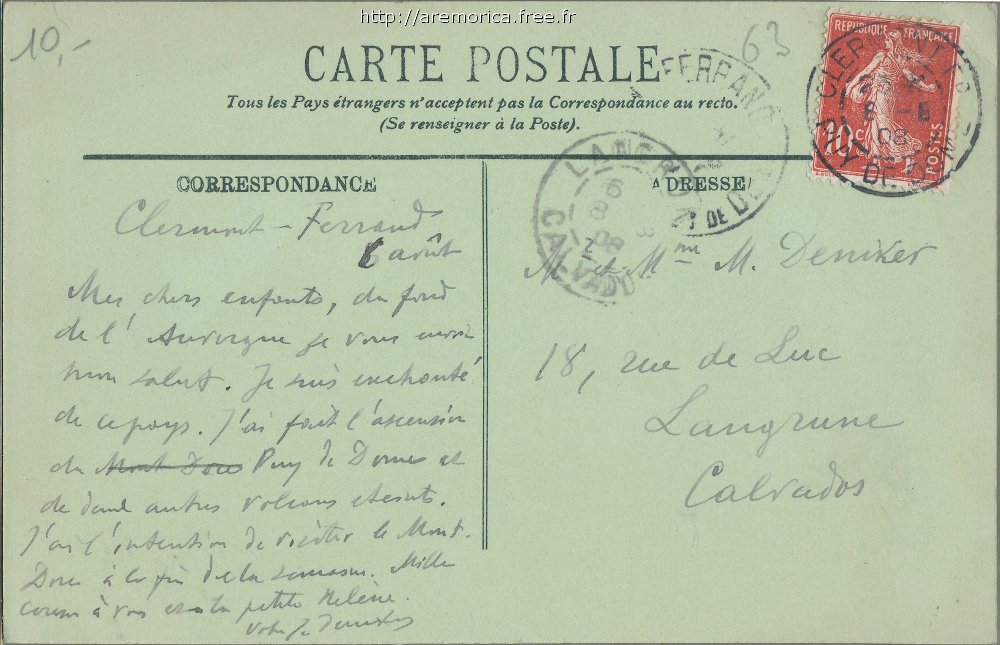 http://aremorica.free.fr
10,-
63
CARTE POSTALE
Tous les Pays étrangers n'acceptent pas la Correspondance au recto.
(Se renseigner à la Poste).
RÉPUBLIQUE FRANÇAISE
10 c
POSTES
FERRAND
DE
LANGRUNE
6
8
08
CALVADOS
CORRESPONDANCE
ADRESSE
Clermont-Ferrand
6 août
Mes chers enfants, du fond
de l'Auvergne je vous envoie
mon salut. Je suis enchanté
de ce pays. J'ai fait l'ascension
du Mont Dore Puy de Dome et
de autres volcans éteints.
J'ai l'intention de visiter le Mont.
Dore à la fin de la semaine. Mille
à vous et à la petite Hélène.
M. et Mme M. Deniker
18, rue de Luc
Langrune
Calvados